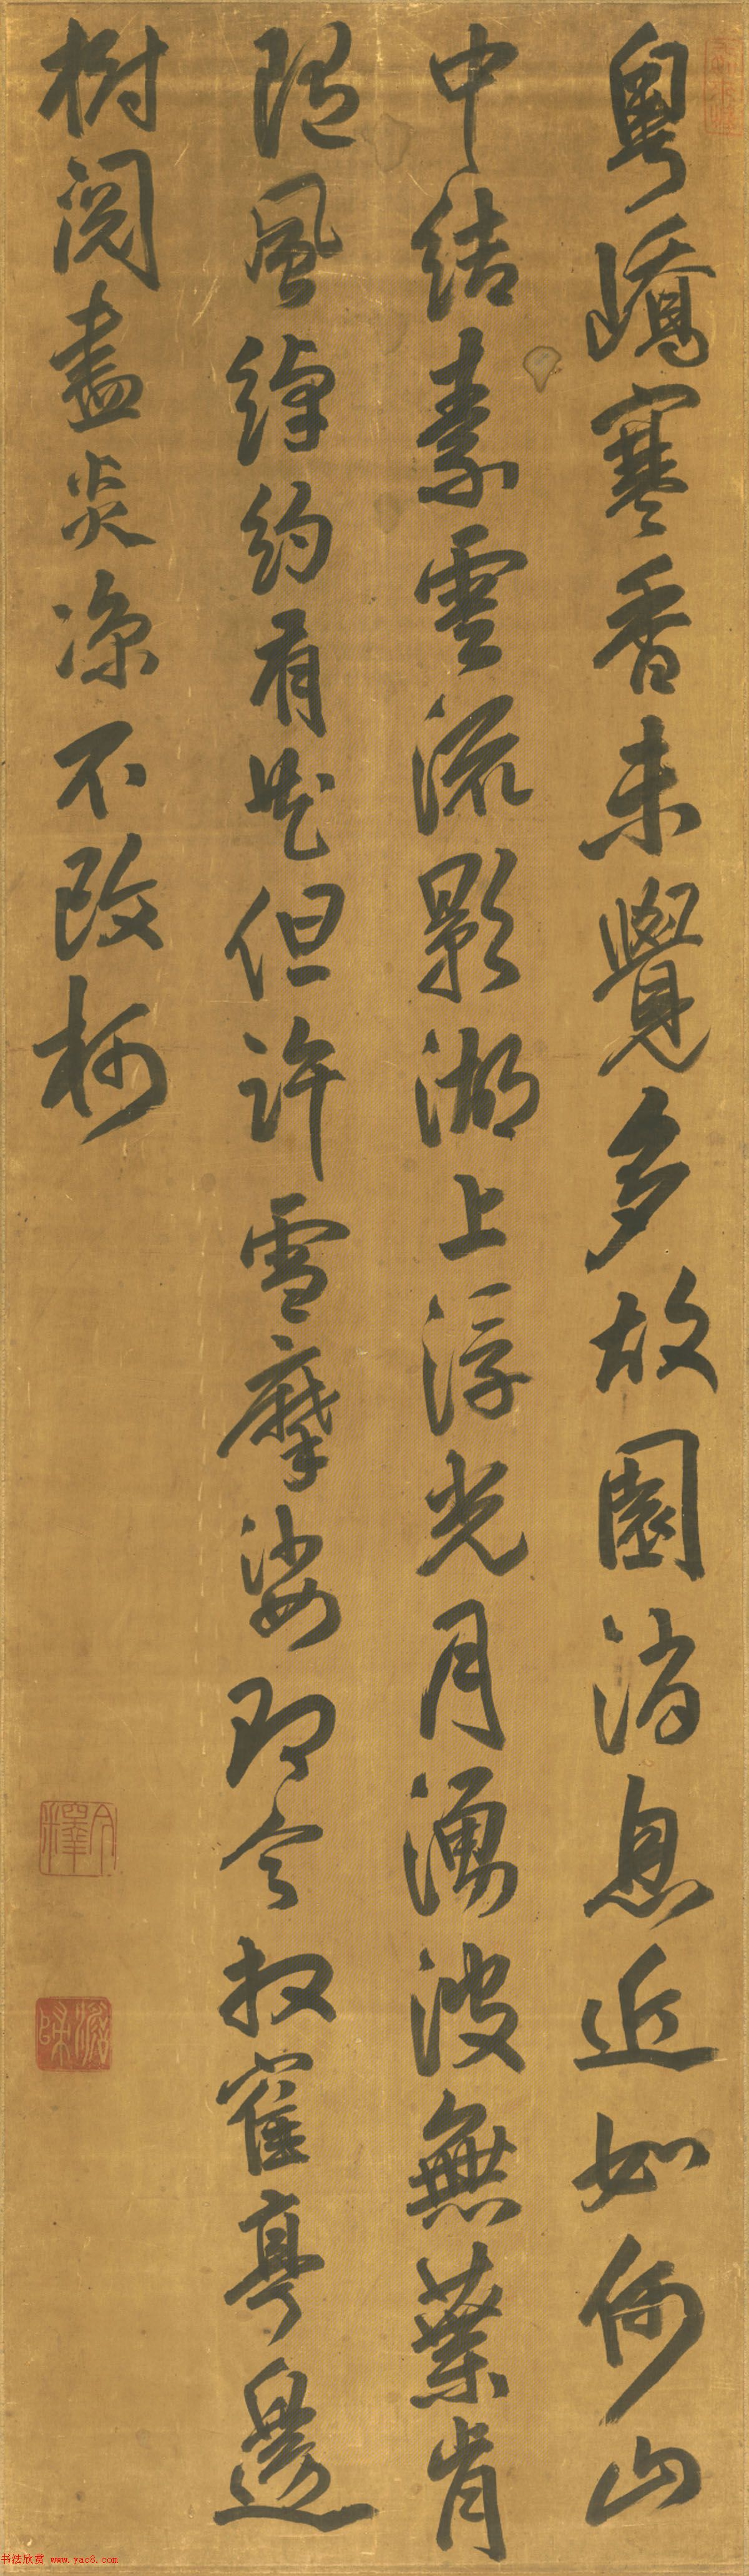 粵嶠寒香未覺多故園消息近如何山
中結素雲流影湖上浮光月湧波無葉肯
隨風綽約有花但許雪摩娑即今放寉亭邊
樹閱盡炎凉不改柯
今釋
澹歸
书法欣赏 www.yac8.com